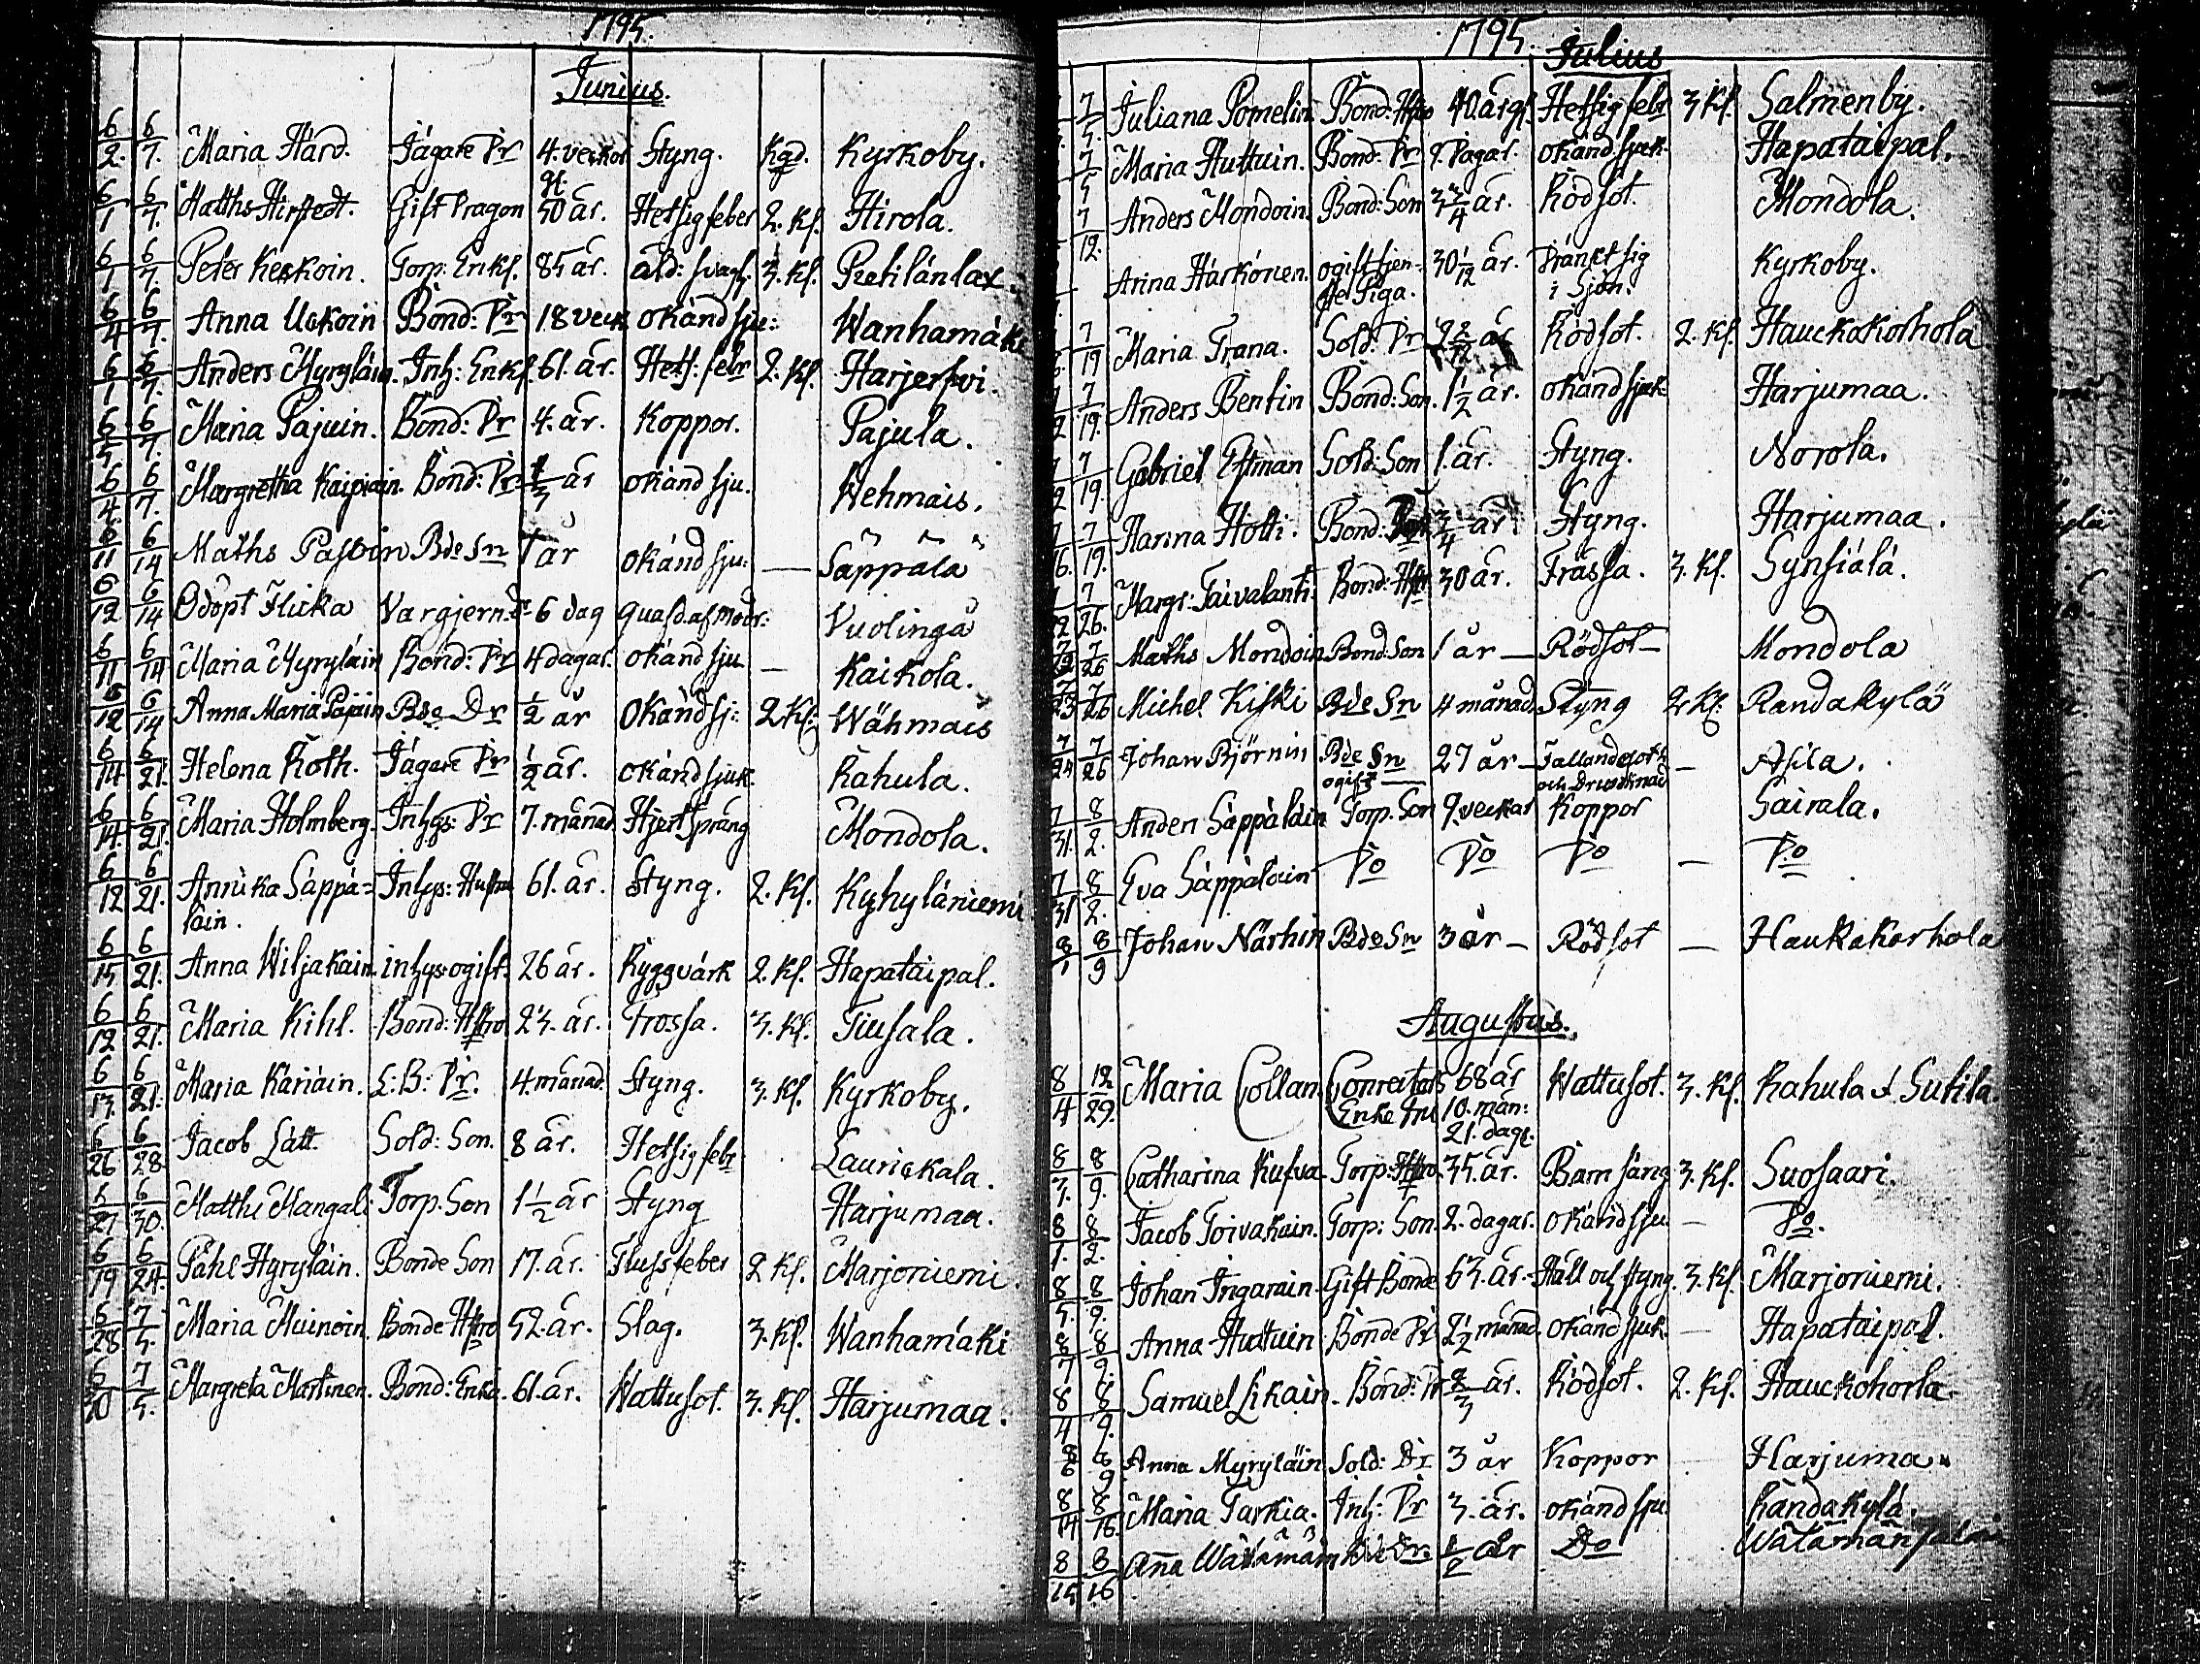 1795.
Junius.
6/2. 6/7. Maria Hård. Jägare Dr 4. veckor Styng. Kgd. Kyrkoby.
6/1 6/7. Matths Hirstedt. Gift Dragon 50 år. Hetsigfeber 2. Kl. Hirola.
6/1 6/7. Peter Keskoin. Torp: Enkl. 85 år. åld: svagh. 3. Kl. Pretilänlax.
6/4 6/7. Anna Uckoin Bond: Dr 18 veck okänd sju: Wanhamäki
6/1 6/7. Anders Myryläin. Inh: Enkl. 61. år. Hets: febr 2. Kl. Harjerfvi.
6/5 6/7. Maria Pajuin. Bond: Dr 4. år. Koppor. Pajula.
6/4. 6/7. Margretha Kaipiain. Bond: Dr 1/3 år okänd sju. Wehmais.
6/11 6/14 Maths Pasoin Bde Sn 1 år okänd sju: — Säppälä
6/12 6/14 Odöpt Flicka Vargjern. Dr 6 dag quafd af modr: Vuolinga
6/11 6/14 Maria Myryläin Bond: Dr 4 dagar. okänd sju — Kaikola.
6/12 6/14 Anna Maria Pajuin Bde Dr 1/2 år Okänd sj: 2 Kl: Wähmais
6/14 6/21. Helena Roth. Jägare Dr 1/2 år. okänd sjuk. Rahula.
6/14. 6/21. Maria Holmberg. Inhys: Dr 7. månad Hjertsprång Mondola.
6/12 6/21. Annika Säppä= Inhys: Hustru 61. år. Styng. 2. Kl. Kyhyläniemi
läin.
6/15 6/21. Anna Wiljakain. inhys ogift. 26 år. Ryggvärk 2. Kl. Hapataipal.
6/12 6/21. Maria Kihl. Bond: Hstro 23. år. Frossa. 3. Kl. Tiusala.
6/17. 6/21. Maria Kariäin. L: B: Dr. 4. månad. Styng. 3. Kl. Kyrkoby.
6/26 6/28 Jacob Lätt. Sold: Son. 8 år. Hetsigfebr Laurickala.
6/27 6/30. Matths Mangal: Torp. Son 1 1/2 år Styng Harjumaa.
6/19 6/24. Påhl Hyryläin. Bonde Son 17. år. Flussfeber 2 Kl. Marjoniemi.
6/28 7/5. Maria Muinoin. Bonde Hstro 52. år. Slag. 3. Kl. Wanhamäki
7/5. Margreta Martinen. Bond: Enka. 61. år. Wattusot. 3. Kl. Harjumaa.
1795. Julius
7/5. Juliana Pomelin Bond: Hstro 40. år gl. Hetsigfebr 3 Kl. Salmenby.
7/5 Maria Huttuin. Bond: Dr 9. Dagar. okänd sjuk. Hapataipal.
7/12. Anders Mondoin. Bond: Son 3 3/4 år. Rödsot. Mondola.
Anna Härkönen. ogift tjen- 30 1/12 år. Dränkt sig Kyrkoby.
ste Piga. i Sjön.
7/19 Maria Trana. Sold: Dr 2 år Rödsot. 2. Kl. Hauckokorhola
7/19. Anders Bentin Bond: Son. 1 1/2 år. okänd sjuk Harjumaa.
7/19. Gabriel Estman Sold: Son 1. år. Styng. Norola.
7/19. Hanna Hotti. Bond: 3/4 år Styng. Harjumaa.
7/26. Margr: Taivalanti. Bond: Hstr. 30 år. Frassa. 3. Kl. Synsiälä.
7/26 Maths Mondoin Bond Son 1 år — Rödsot — Mondola
7/23 7/26 Michel Kiski Bde Sn 4 månad. Styng 2 Kl: Randakylä
7/24 7/26 Johan Björnin Bde Sn 27 år — Fallandesot — Asila.
ogift och Druncknad
7/31. 8/2. Anders Säppäläin Torp. Son 9. veckar Koppor Sairala.
7/31 8/2. Eva Säppäläin Do Do Do — Do
8/1 8/9 Johan Närhin Bde Sn 3 år — Rödsot — Haukakorhola
Augustus.
8/4 12/29. Maria Collan. Conrectors 68 år Wattusot. 3. Kl. Rahula & Sutila.
Enke Fru 10. mån:
21. dagr.
8/7. 8/9. Catharina Kufva Torp: Hstro 35. år. Barnsäng 3. Kl. Suosaari.
8/1. 8/2. Jacob Toivakain. Torp: Son. 2. dagar. okänd sju — Do.
8/5. 8/9. Johan Ingarain. Gift Bonde 63. år. Håll och styng. 3. Kl. Marjoniemi.
8/7 8/9. Anna Huttuin Bonde Dr 2 1/2 månad. okänd sjuk. — Hapataipal.
8/4 8/9. Samuel Likain. Bond: 2/3 år. Rödsot. 2. Kl. Hauckohorla.
8/6 8/9 Anna Myryläin Sold: Dr 3 år Koppor Harjuma.
8/14 8/16. Maria Tarkia. Inh: Dr 3. år. okänd sju Randakylä.
8/15 8/16 Anna Watamäin Bde Dr. 1/2 år Do